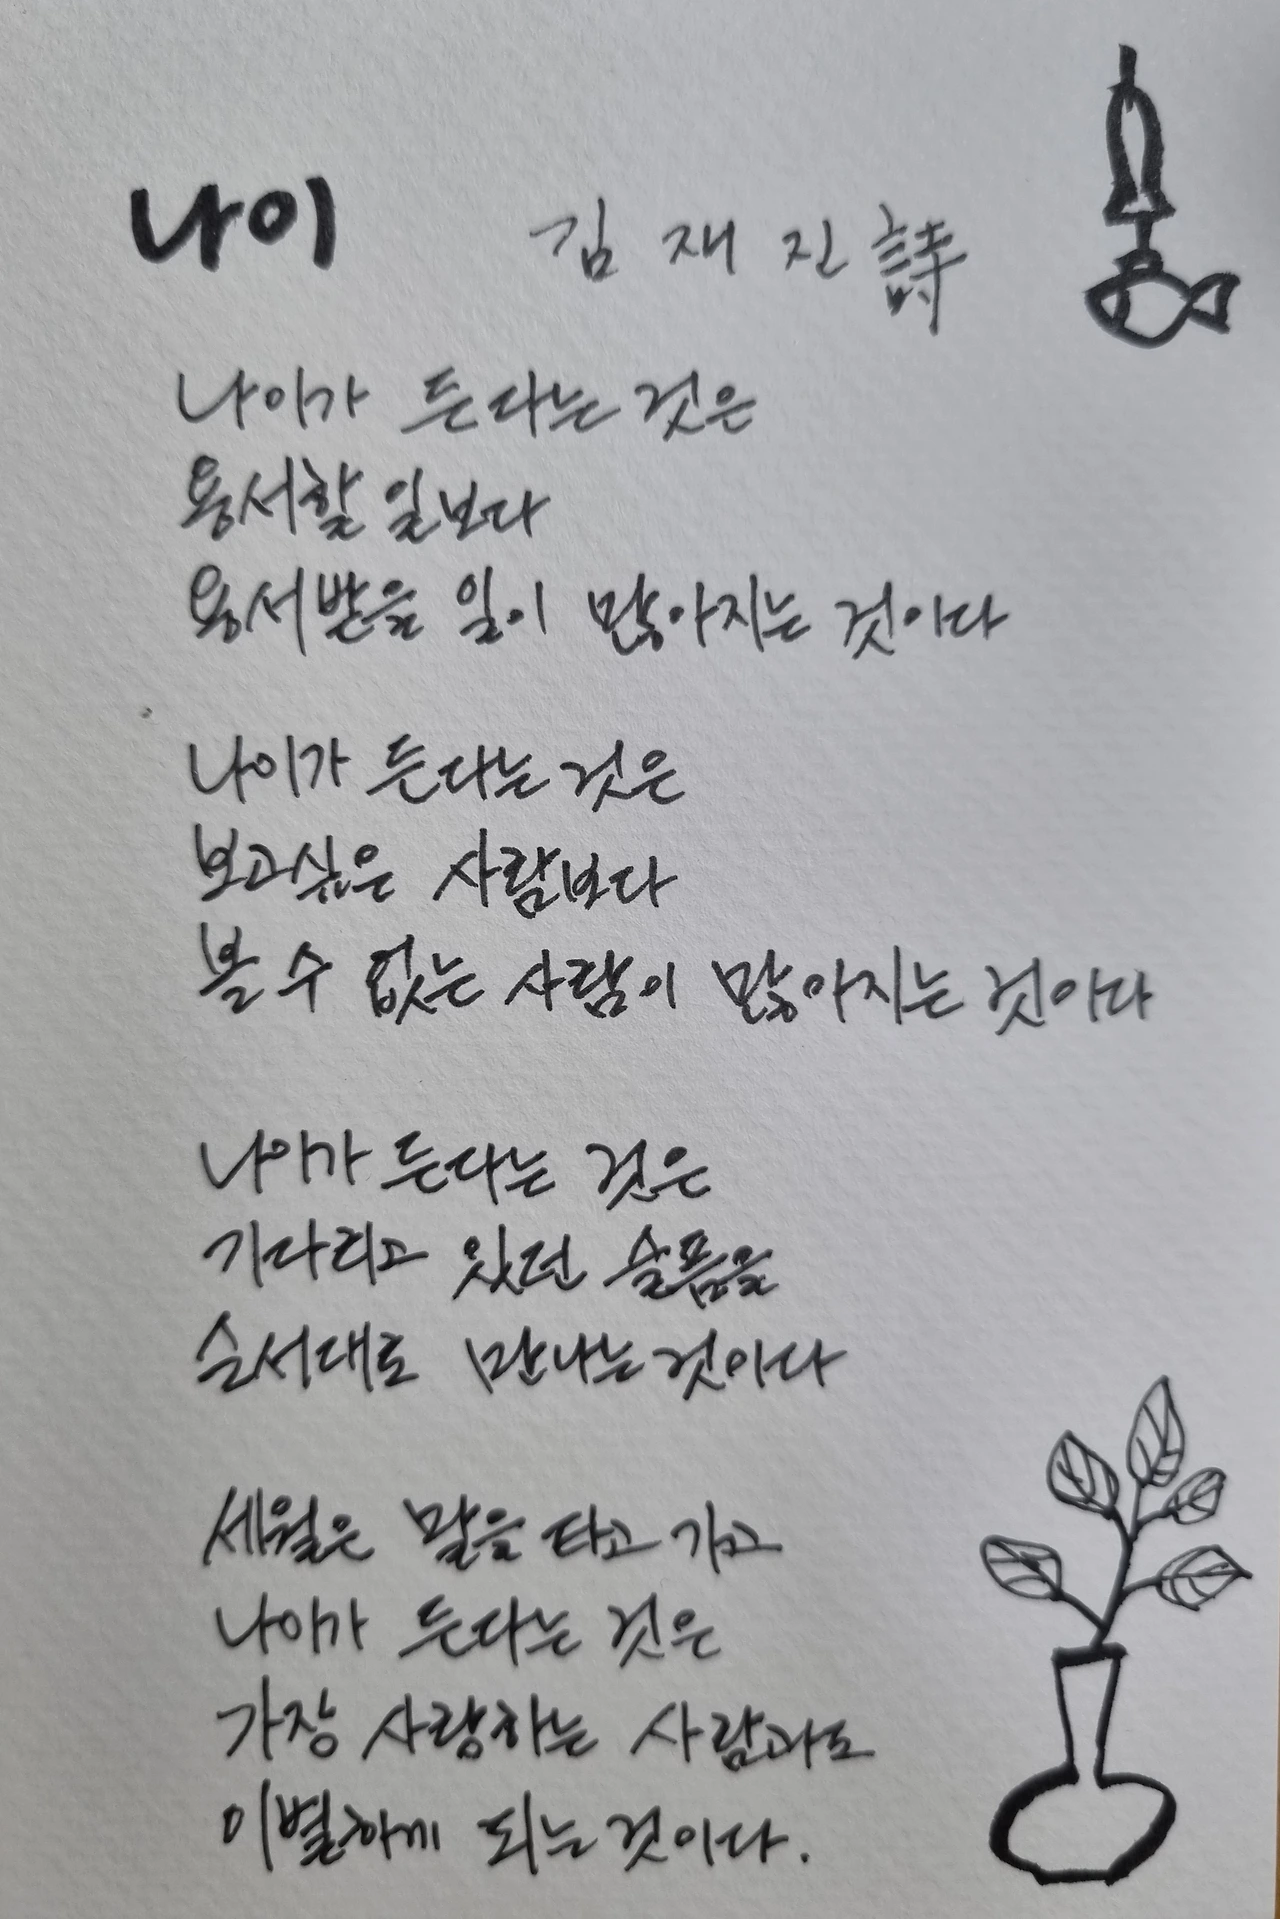 나이 김재진 詩
나이가 든다는 것은
용서할 일보다
용서받을 일이 많아지는 것이다
나이가 든다는 것은
보고싶은 사람보다
볼 수 없는 사람이 많아지는 것이다
나이가 든다는 것은
기다리고 있던 슬픔을
순서대로 만나는 것이다
세월은 말을 타고 가고
나이가 든다는 것은
가장 사랑하는 사람과도
이별하게 되는 것이다.